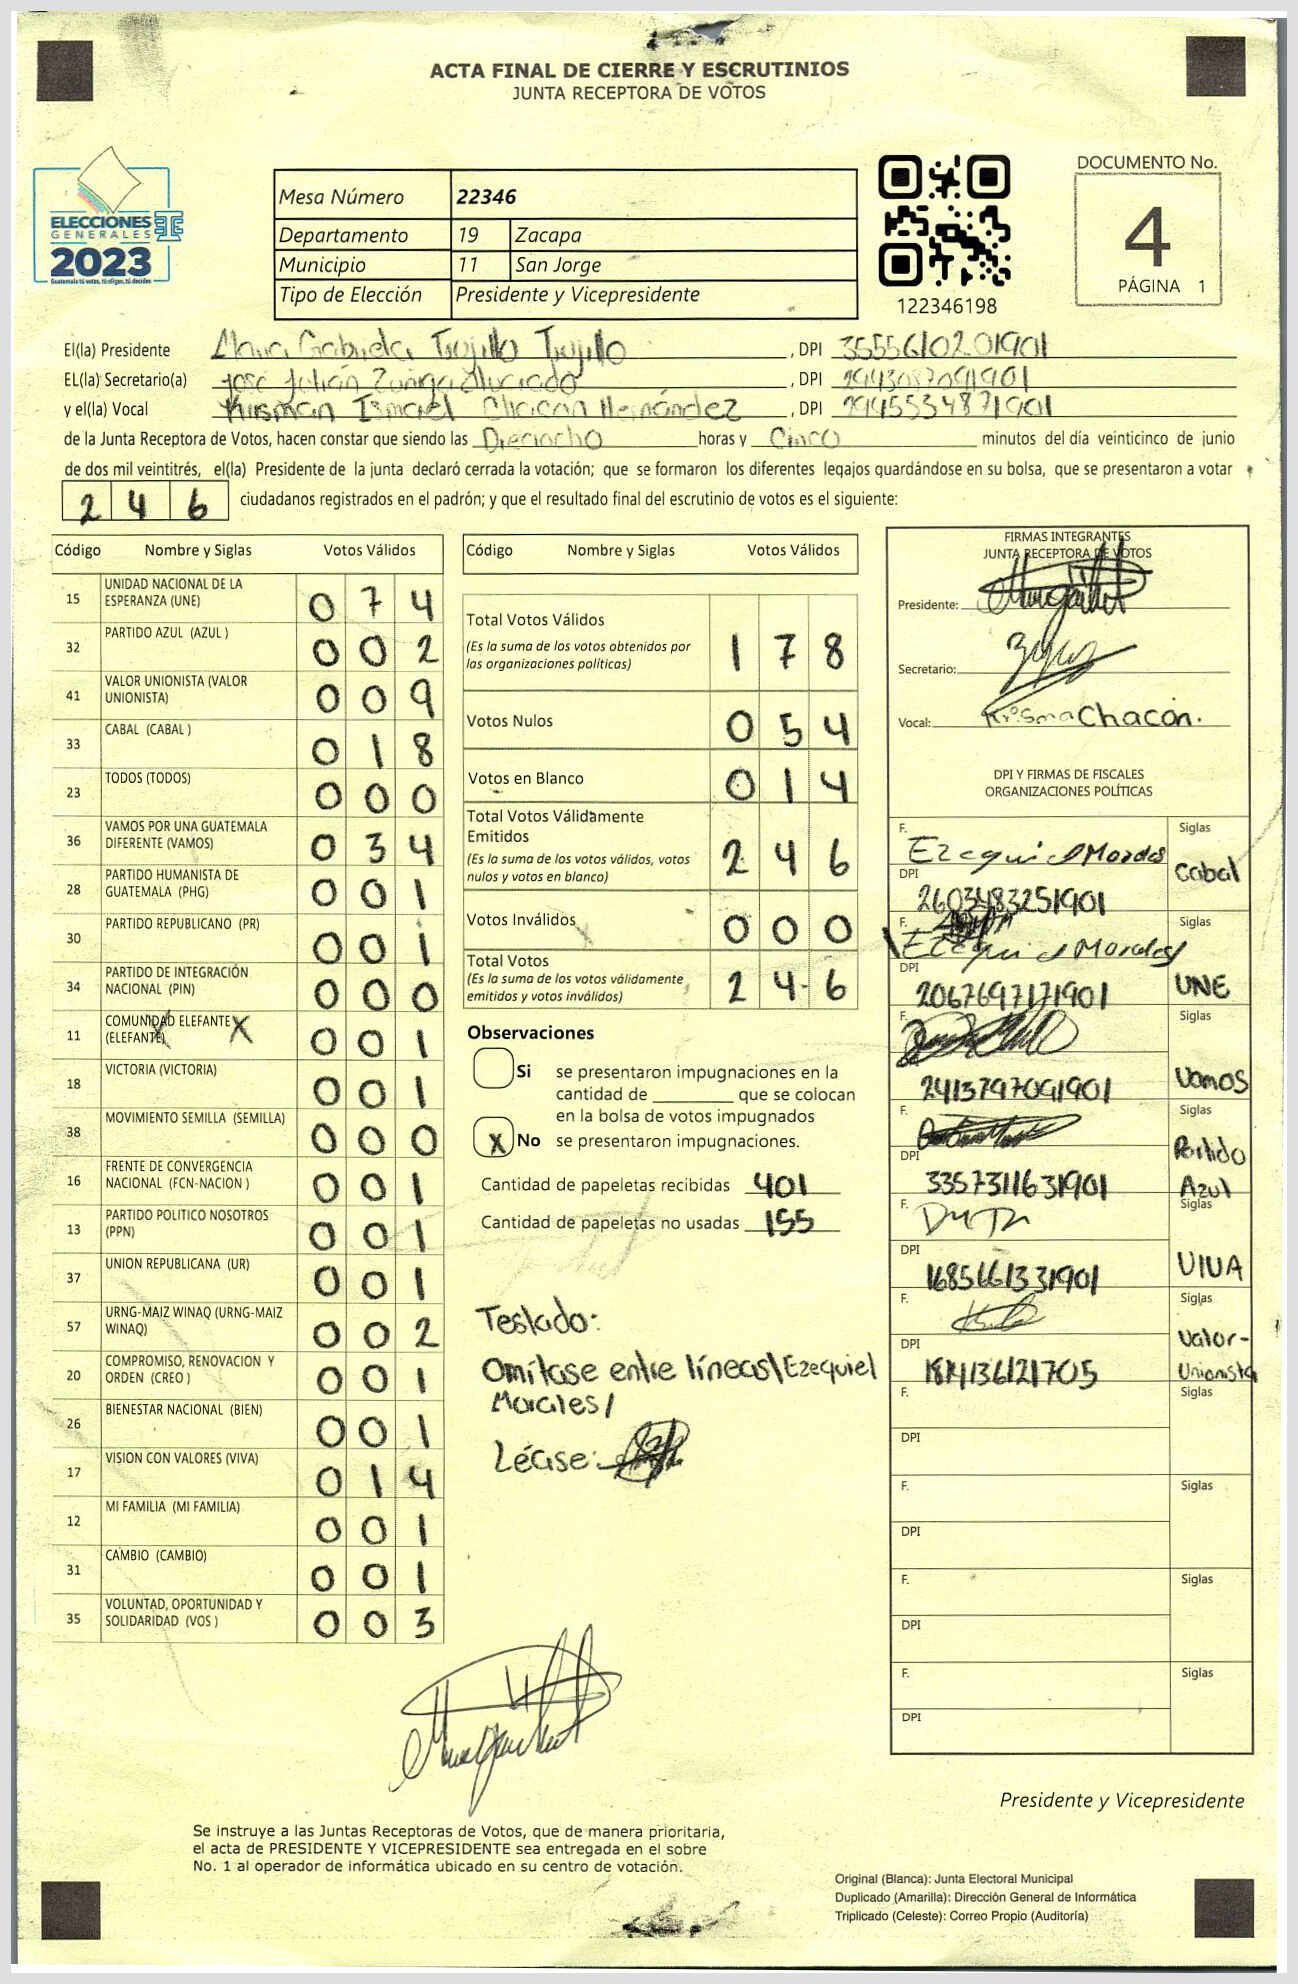 ACTA FINAL DE CIERRE Y ESCRUTINIOS
JUNTA RECEPTORA DE VOTOS
ELECCIONES
GENERALES
2023
Guatemala tú votas, tú eliges, tú decides
Mesa Número 22346
Departamento 19 Zacapa
Municipio 11 San Jorge
Tipo de Elección Presidente y Vicepresidente
122346198
DOCUMENTO No.
4
PÁGINA 1
El(la) Presidente Gabriela Trujillo Trujillo , DPI 3555610201901
EL(la) Secretario(a) José Julián Zuñiga Alvarado , DPI 2943087091901
y el(la) Vocal Ismael Chacan Hernández , DPI 2945534871901
de la Junta Receptora de Votos, hacen constar que siendo las Dieciocho horas y Cinco minutos del día veinticinco de junio
de dos mil veintitrés, el(la) Presidente de la junta declaró cerrada la votación; que se formaron los diferentes legajos guardándose en su bolsa, que se presentaron a votar
246 ciudadanos registrados en el padrón; y que el resultado final del escrutinio de votos es el siguiente:
Código Nombre y Siglas Votos Válidos
15 UNIDAD NACIONAL DE LA ESPERANZA (UNE) 074
32 PARTIDO AZUL (AZUL ) 002
41 VALOR UNIONISTA (VALOR UNIONISTA) 009
33 CABAL (CABAL ) 018
23 TODOS (TODOS) 000
36 VAMOS POR UNA GUATEMALA DIFERENTE (VAMOS) 034
28 PARTIDO HUMANISTA DE GUATEMALA (PHG) 001
30 PARTIDO REPUBLICANO (PR) 001
34 PARTIDO DE INTEGRACIÓN NACIONAL (PIN) 000
11 COMUNIDAD ELEFANTE (ELEFANTE) X X 001
18 VICTORIA (VICTORIA) 001
38 MOVIMIENTO SEMILLA (SEMILLA) 000
16 FRENTE DE CONVERGENCIA NACIONAL (FCN-NACION ) 001
13 PARTIDO POLITICO NOSOTROS (PPN) 001
37 UNION REPUBLICANA (UR) 001
57 URNG-MAIZ WINAQ (URNG-MAIZ WINAQ) 002
20 COMPROMISO, RENOVACION Y ORDEN (CREO ) 001
26 BIENESTAR NACIONAL (BIEN) 001
17 VISION CON VALORES (VIVA) 014
12 MI FAMILIA (MI FAMILIA) 001
31 CAMBIO (CAMBIO) 001
35 VOLUNTAD, OPORTUNIDAD Y SOLIDARIDAD (VOS ) 003
Código Nombre y Siglas Votos Válidos
Total Votos Válidos 178
(Es la suma de los votos obtenidos por
las organizaciones políticas)
Votos Nulos 054
Votos en Blanco 014
Total Votos Válidamente
Emitidos 246
(Es la suma de los votos válidos, votos
nulos y votos en blanco)
Votos Inválidos 000
Total Votos 246
(Es la suma de los votos válidamente
emitidos y votos inválidos)
Observaciones
Si se presentaron impugnaciones en la
cantidad de ________ que se colocan
en la bolsa de votos impugnados
X No se presentaron impugnaciones.
Cantidad de papeletas recibidas 401
Cantidad de papeletas no usadas 155
Testado:
Omítase entre líneas\Ezequiel
Morales/
Léase:
FIRMAS INTEGRANTES
JUNTA RECEPTORA DE VOTOS
Presidente:
Secretario:
Vocal: Chacón.
DPI Y FIRMAS DE FISCALES
ORGANIZACIONES POLÍTICAS
F. Ezequiel Morales Siglas
Cabal
DPI 2603483251901
F. Ezequiel Morales Siglas
DPI 2067697171901 UNE
F. Siglas
2413797091901 Vamos
F. Siglas
DPI Partido
3357311631901 Azul
F. Siglas
DPI 1685661331901 VIVA
F. Siglas
DPI 1814136121705 Valor-
Unionista
F. Siglas
DPI
F. Siglas
DPI
F. Siglas
DPI
F. Siglas
DPI
Presidente y Vicepresidente
Se instruye a las Juntas Receptoras de Votos, que de manera prioritaria,
el acta de PRESIDENTE Y VICEPRESIDENTE sea entregada en el sobre
No. 1 al operador de informática ubicado en su centro de votación.
Original (Blanca): Junta Electoral Municipal
Duplicado (Amarilla): Dirección General de Informática
Triplicado (Celeste): Correo Propio (Auditoría)